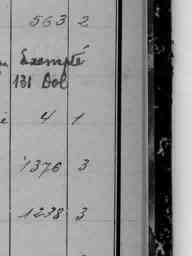 563 2
Exempté
131 Dol
4 1
1376 3
1238 3